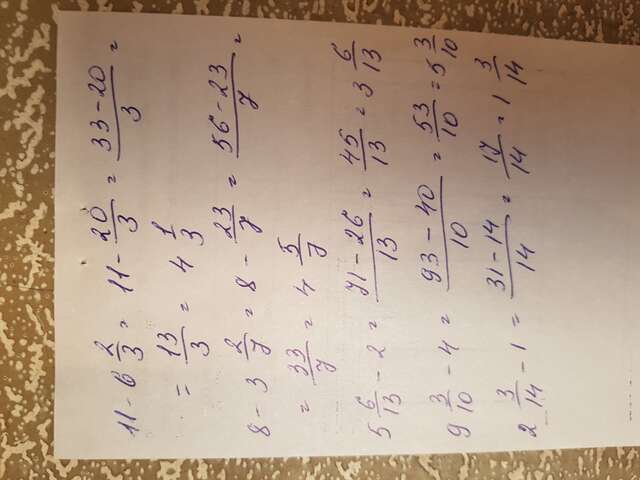 11 - 6 2/3 = 11 - 20/3 = (33 - 20)/3 =
= 13/3 = 4 1/3
8 - 3 2/7 = 8 - 23/7 = (56 - 23)/7 =
= 33/7 = 4 5/7
5 6/13 - 2 = (71 - 26)/13 = 45/13 = 3 6/13
9 3/10 - 4 = (93 - 40)/10 = 53/10 = 5 3/10
2 3/14 - 1 = (31 - 14)/14 = 17/14 = 1 3/14